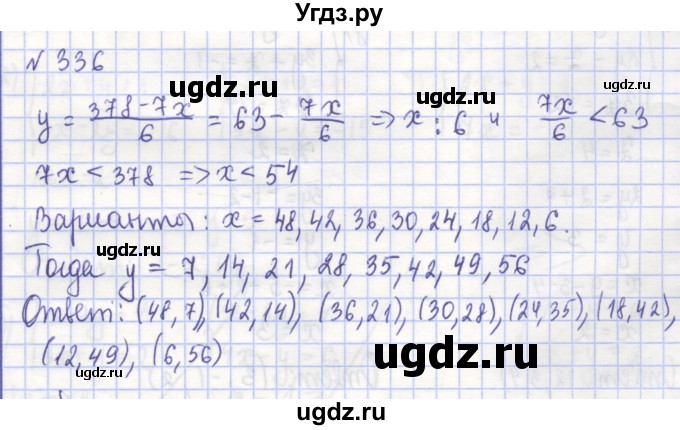 Угдз.ру
№ 336
y = (378-7x)/6 = 63 - 7x/6 => x ⋮ 6 и 7x/6 < 63
7x < 378 => x < 54
Варианты: x = 48, 42, 36, 30, 24, 18, 12, 6.
Тогда y = 7, 14, 21, 28, 35, 42, 49, 56
Ответ: (48,7), (42,14), (36,21), (30,28), (24,35), (18,42),
(12,49), (6,56)
ugdz.ru
ugdz.ru
ugdz.ru
ugdz.ru
ugdz.ru
ugdz.ru
ugdz.ru
ugdz.ru